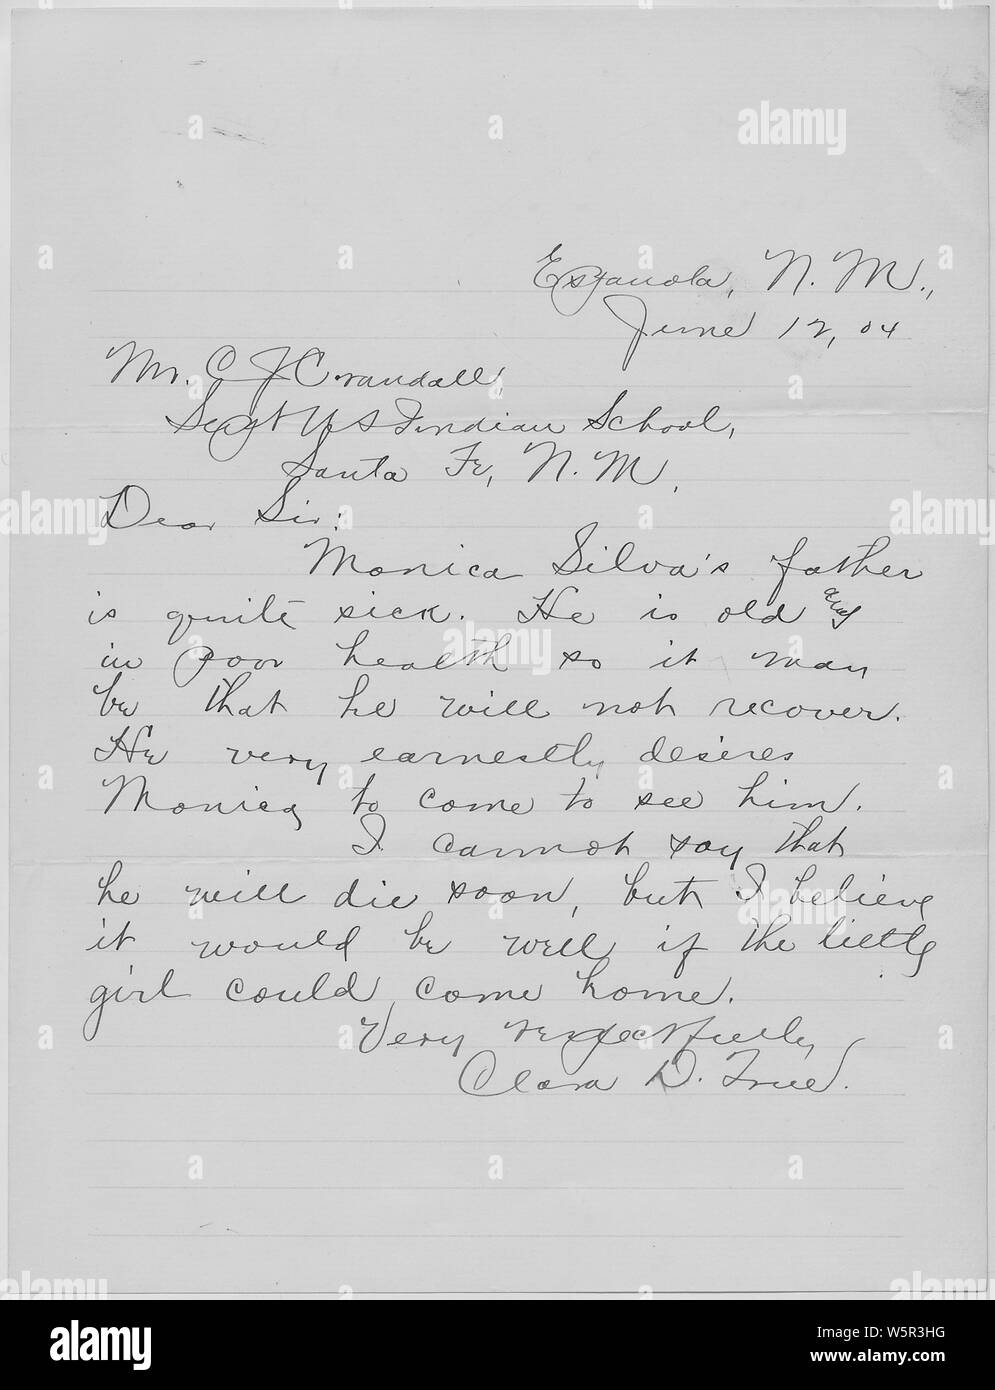 Espanola, N. M.,
June 12, 04
Mr. C J Crandall,
Supt U S Indian School,
Santa Fe, N. M.,
Dear Sir:
Monica Silva's father
is quite sick. He is old and
in poor health so it may
be that he will not recover.
He very earnestly desires
Monica to come to see him.
I cannot say that
he will die soon, but I believe
it would be well if the little
girl could come home.
Very respectfully,
Clara D. True.
alamy
Image ID: W5R3HG
www.alamy.com